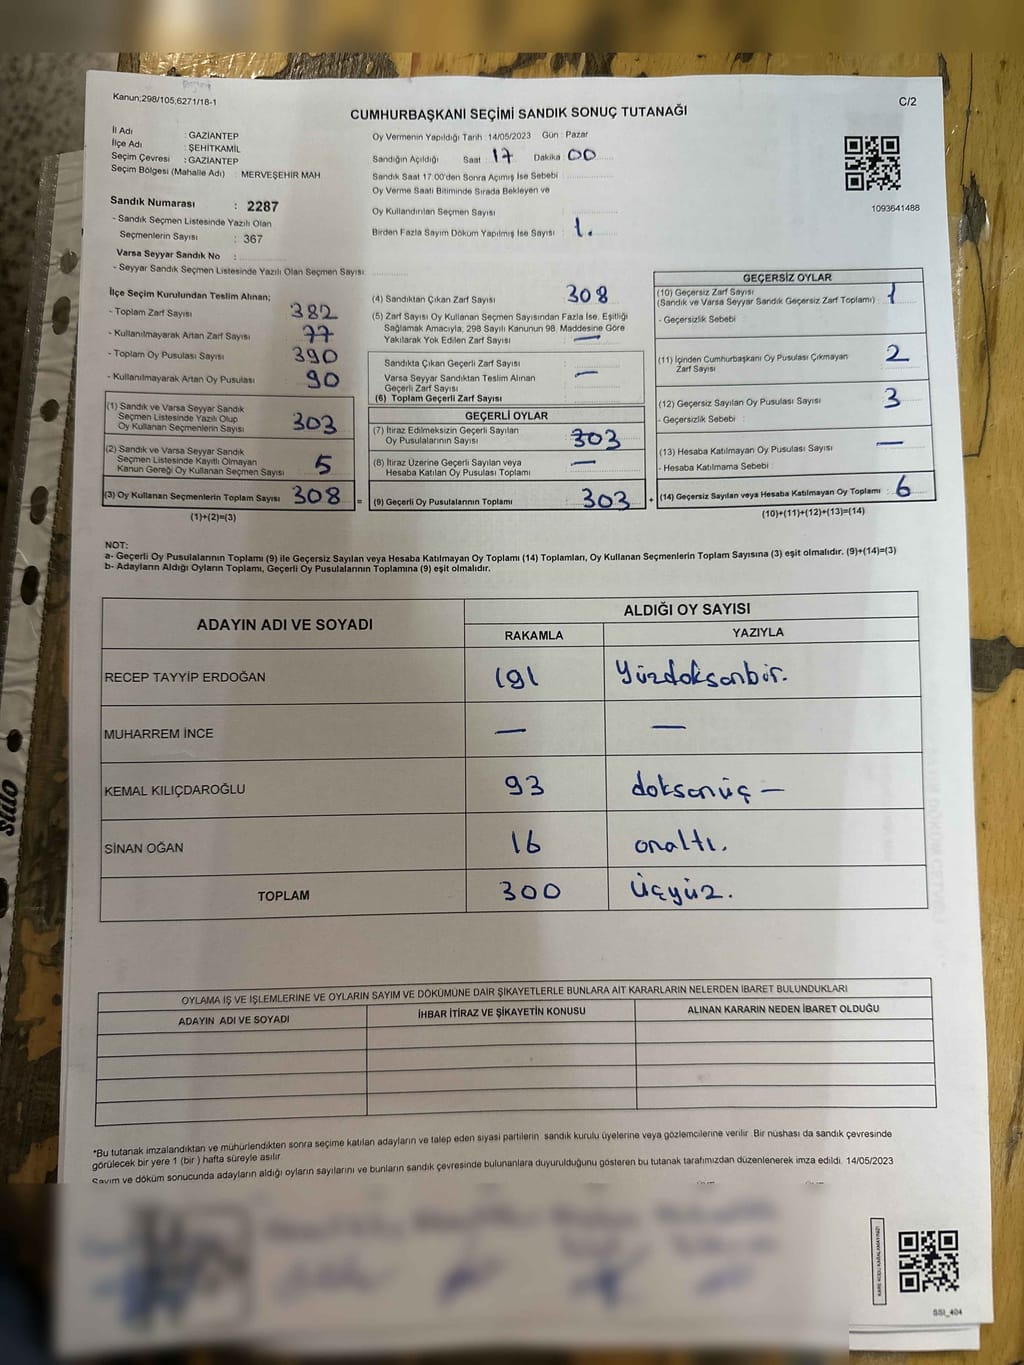 Kanun;298/105,6271/18-1
C/2
CUMHURBAŞKANI SEÇİMİ SANDIK SONUÇ TUTANAĞI
İl Adı : GAZİANTEP
İlçe Adı : ŞEHİTKAMİL
Seçim Çevresi : GAZİANTEP
Seçim Bölgesi (Mahalle Adı) : MERVEŞEHİR MAH
Sandık Numarası : 2287
- Sandık Seçmen Listesinde Yazılı Olan
Seçmenlerin Sayısı : 367
Varsa Seyyar Sandık No :
- Seyyar Sandık Seçmen Listesinde Yazılı Olan Seçmen Sayısı:
Oy Vermenin Yapıldığı Tarih :14/05/2023 Gün : Pazar
Sandığın Açıldığı Saat : 17 Dakika : 00
Sandık Saat 17:00'den Sonra Açımış İse Sebebi :
Oy Verme Saati Bitiminde Sırada Bekleyen ve
Oy Kullandırılan Seçmen Sayısı
Birden Fazla Sayım Döküm Yapılmış İse Sayısı : 1.
1093641488
İlçe Seçim Kurulundan Teslim Alınan;
- Toplam Zarf Sayısı : 382
- Kullanılmayarak Artan Zarf Sayısı : 77
- Toplam Oy Pusulası Sayısı : 390
- Kullanılmayarak Artan Oy Pusulası : 90
(1) Sandık ve Varsa Seyyar Sandık
Seçmen Listesinde Yazılı Olup
Oy Kullanan Seçmenlerin Sayısı : 303
(2) Sandık ve Varsa Seyyar Sandık
Seçmen Listesinde Kayıtlı Olmayan
Kanun Gereği Oy Kullanan Seçmen Sayısı : 5
(3) Oy Kullanan Seçmenlerin Toplam Sayısı : 308 =
(1)+(2)=(3)
(4) Sandıktan Çıkan Zarf Sayısı : 308
(5) Zarf Sayısı Oy Kullanan Seçmen Sayısından Fazla İse, Eşitliği
Sağlamak Amacıyla, 298 Sayılı Kanunun 98. Maddesine Göre
Yakılarak Yok Edilen Zarf Sayısı : —
Sandıkta Çıkan Geçerli Zarf Sayısı
Varsa Seyyar Sandıktan Teslim Alınan : —
Geçerli Zarf Sayısı
(6) Toplam Geçerli Zarf Sayısı
GEÇERLİ OYLAR
(7) İtiraz Edilmeksizin Geçerli Sayılan
Oy Pusulalarının Sayısı : 303
(8) İtiraz Üzerine Geçerli Sayılan veya
Hesaba Katılan Oy Pusulası Toplamı : —
(9) Geçerli Oy Pusulalarının Toplamı : 303 +
GEÇERSİZ OYLAR
(10) Geçersiz Zarf Sayısı
(Sandık ve Varsa Seyyar Sandık Geçersiz Zarf Toplamı) : 1
- Geçersizlik Sebebi :
(11) İçinden Cumhurbaşkanı Oy Pusulası Çıkmayan
Zarf Sayısı : 2
(12) Geçersiz Sayılan Oy Pusulası Sayısı : 3
- Geçersizlik Sebebi :
(13) Hesaba Katılmayan Oy Pusulası Sayısı : —
- Hesaba Katılmama Sebebi :
(14) Geçersiz Sayılan veya Hesaba Katılmayan Oy Toplamı : 6
(10)+(11)+(12)+(13)=(14)
NOT:
a- Geçerli Oy Pusulalarının Toplamı (9) ile Geçersiz Sayılan veya Hesaba Katılmayan Oy Toplamı (14) Toplamları, Oy Kullanan Seçmenlerin Toplam Sayısına (3) eşit olmalıdır. (9)+(14)=(3)
b- Adayların Aldığı Oyların Toplamı, Geçerli Oy Pusulalarının Toplamına (9) eşit olmalıdır.
ADAYIN ADI VE SOYADI
ALDIĞI OY SAYISI
RAKAMLA YAZIYLA
RECEP TAYYİP ERDOĞAN 191 Yüzdoksanbir.
MUHARREM İNCE — —
KEMAL KILIÇDAROĞLU 93 doksanüç —
SİNAN OĞAN 16 onaltı.
TOPLAM 300 üçyüz.
OYLAMA İŞ VE İŞLEMLERİNE VE OYLARIN SAYIM VE DÖKÜMÜNE DAİR ŞİKAYETLERLE BUNLARA AİT KARARLARIN NELERDEN İBARET BULUNDUKLARI
ADAYIN ADI VE SOYADI İHBAR İTİRAZ VE ŞİKAYETİN KONUSU ALINAN KARARIN NEDEN İBARET OLDUĞU
*Bu tutanak imzalandıktan ve mühürlendikten sonra seçime katılan adayların ve talep eden siyasi partilerin sandık kurulu üyelerine veya gözlemcilerine verilir. Bir nüshası da sandık çevresinde
görülecek bir yere 1 (bir ) hafta süreyle asılır.
Sayım ve döküm sonucunda adayların aldığı oyların sayılarını ve bunların sandık çevresinde bulunanlara duyurulduğunu gösteren bu tutanak tarafımızdan düzenlenerek imza edildi. 14/05/2023
KARE KODU KARALAMAYINIZ!
SSI_404